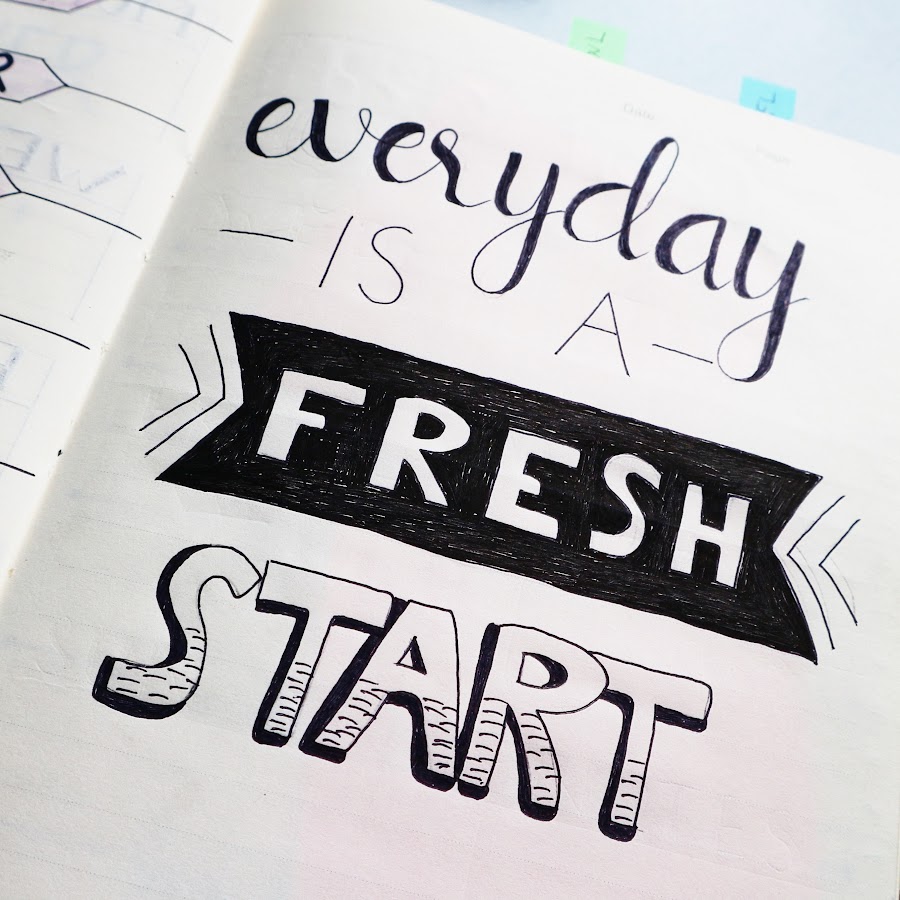 everyday
– IS A –
FRESH
START